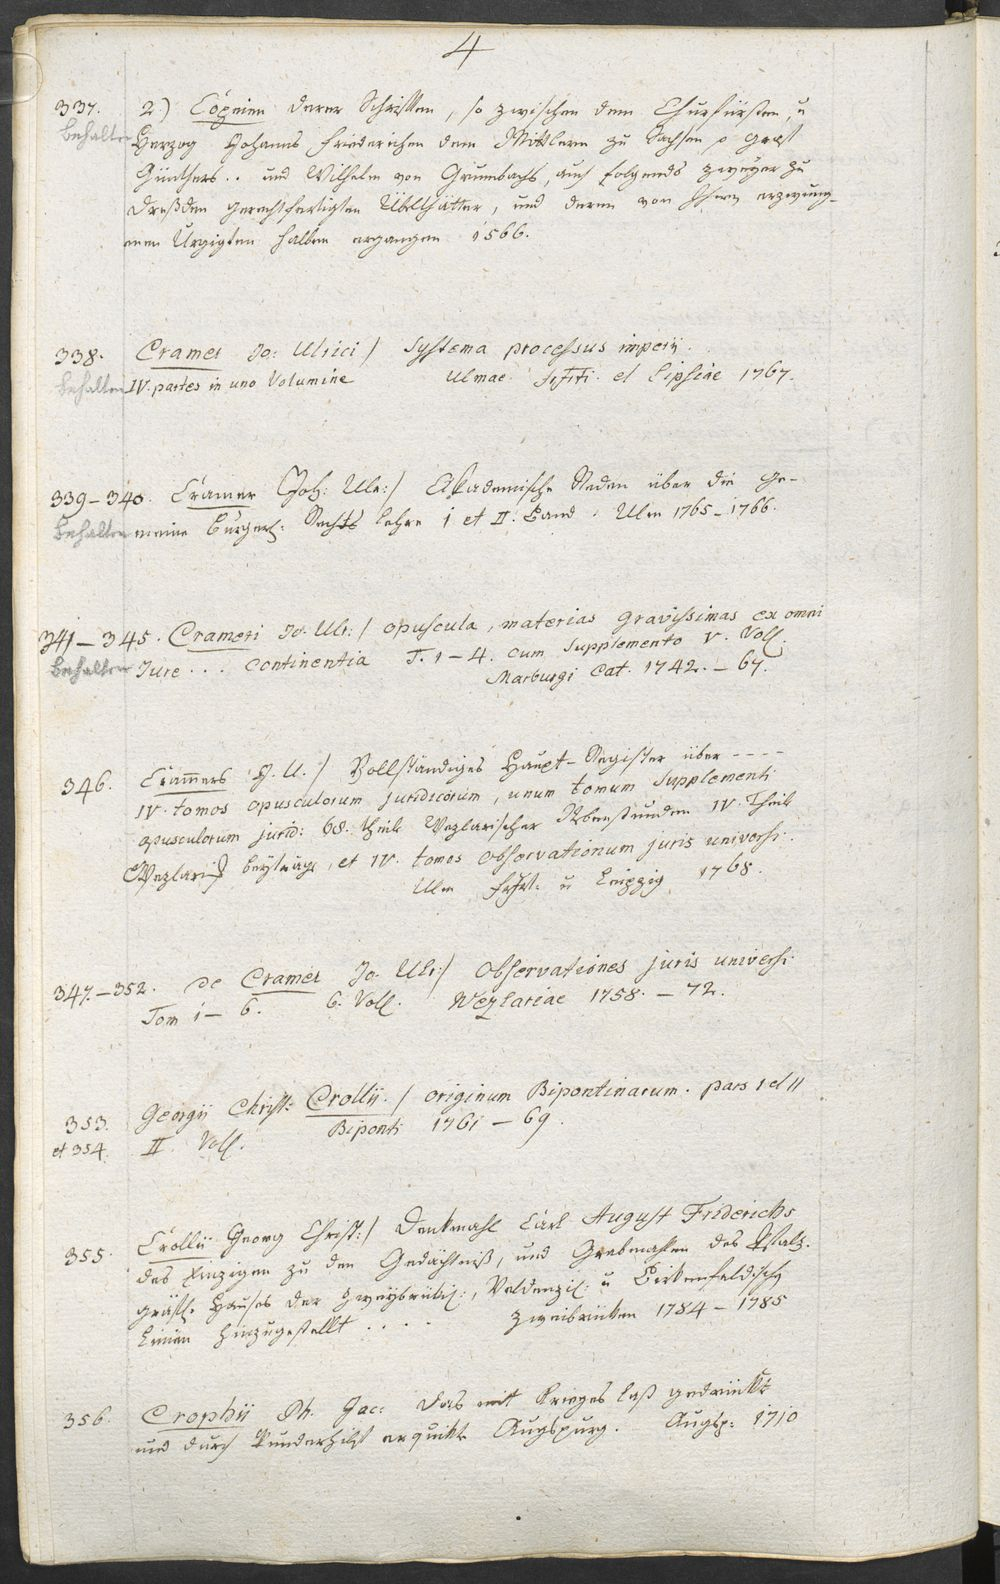 4
337. 2) Copeien derer Schrifften, so zwischen dem Churfürsten, u
behalten Herzog Johanns Friederichen dem Mittlern zu Sachsen p Graf
Günthers .. und Wilhelm von Grumbachs, auch folgends zweyer zu
Dreßden gerechtfertigten Übelthätter, und deren von Ihnen erzwung-
enen Urgigten halben ergangen 1566.
338. Cramer Jo: Ulrici / Systema processus imperij.
behalten IV. partes in uno Volumine Ulmae et Lipsiae 1767.
339-340. Cramer Joh: Ulr:/ Akademische Reden über die Ge-
behalten meine bürgerl: Rechts lehre 1 et II. Band. Ulm 1765-1766.
341-345. Crameri Jo. Ulr:/ opuscula, materias gravissimas ex omni
behalten Jure ... continentia T. 1-4. cum Supplemento V. Voll.
Marburgi Cat. 1742.-67.
346. Cramers J. U. / Vollständiges Haupt-Register über ----
IV. tomos opusculorum juridicorum, unum tomum Supplementi
opusculorum jurid: 68. theile Wezlarischer Nebenstunden IV. Theile
Wezlarisch beyträge, et IV. tomos observationum juris universi.
Ulm u Leipzig 1768.
347.-352. de Cramer Jo. Ulr:/ Observationes juris universi.
Tom 1-6. 6. Voll. Wezlariae 1758.-72.
353. Georgii Christ: Crollii. / originum Bipontinarum. pars 1 et II
et 354. II. Voll. Biponti 1761-69.
355. Crollii Georg Christ:/ Denkmahl Carl August Friderichs
des Einzigen zu den Gedächtniß, und Grabmahlen des Pfalz-
gräfl. Hauses der Zweybrükis:, Veldenzis: u Birkenfeldische
Linien hinzugestellt .... Zweibrücken 1784-1785
356. Crophii Ph. Jac: das mit Krieges last gedrückte
und durch Wunderhilf erquikte Augspurg. Augsp: 1710